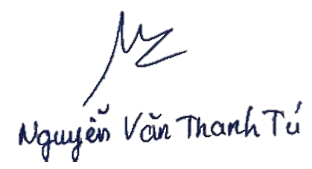 Nguyễn Văn Thanh Tú